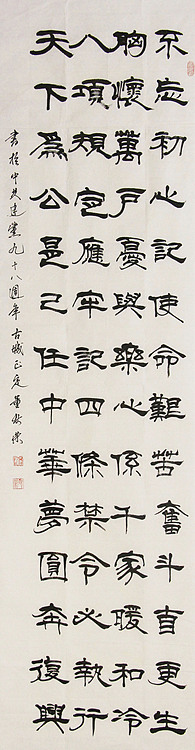 不忘初心記使命艱苦奮斗自更生
胸懷萬戶憂與樂心係千家暖和冷
八項規定應牢記四條禁令必執行
天下爲公是己任中華夢圓奔復興
書於中共建黨九十八週年古城正定董